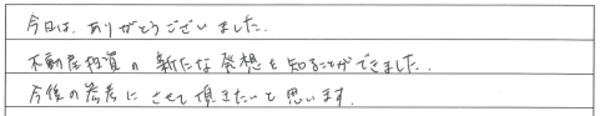 今日は、ありがとうございました。
不動産投資の新たな発想を知ることができました。
今後の参考にさせて頂きたいと思います。